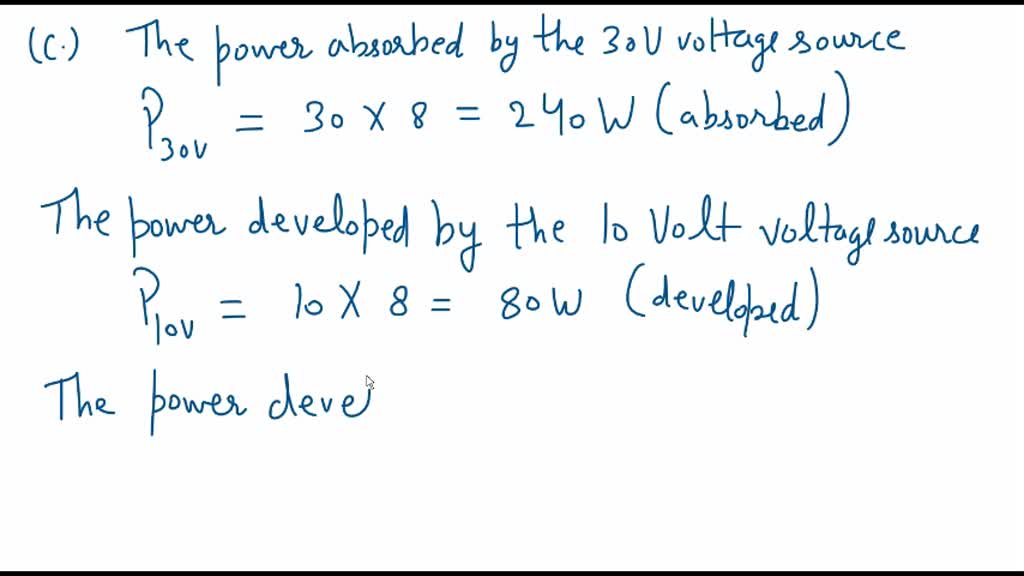 (c.) The power absorbed by the 30V voltage source
P30V = 30 X 8 = 240 W (absorbed)
The power developed by the 10 Volt voltage source
P10V = 10 X 8 = 80 W (developed)
The power deve